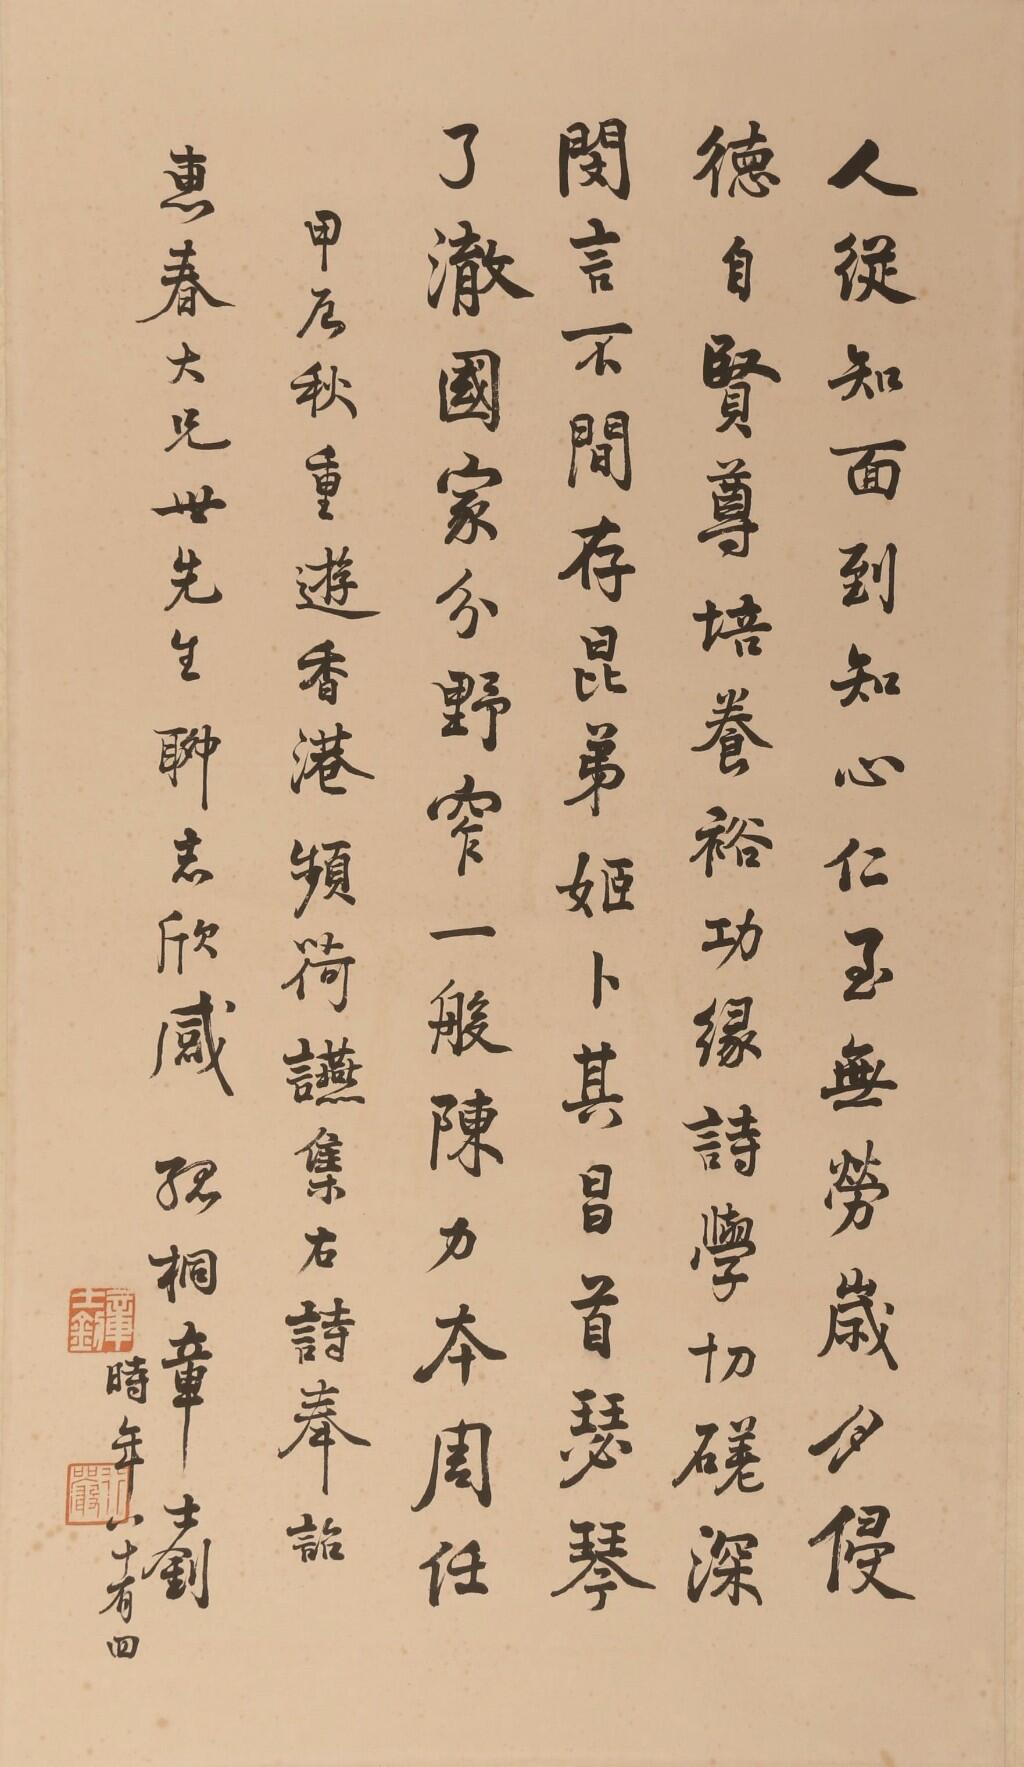 人從知面到知心仁至無勞歲夕侵
德自賢尊培養裕功緣詩學切磋深
閔言不間存昆弟姬卜其昌首瑟琴
了澈國家分野窄一般陳力本周任
甲辰秋重遊香港頻荷讌集右詩奉詒
惠春大兄世先生聊志欣感 孤桐章士釗
時年八十有四
章士釗